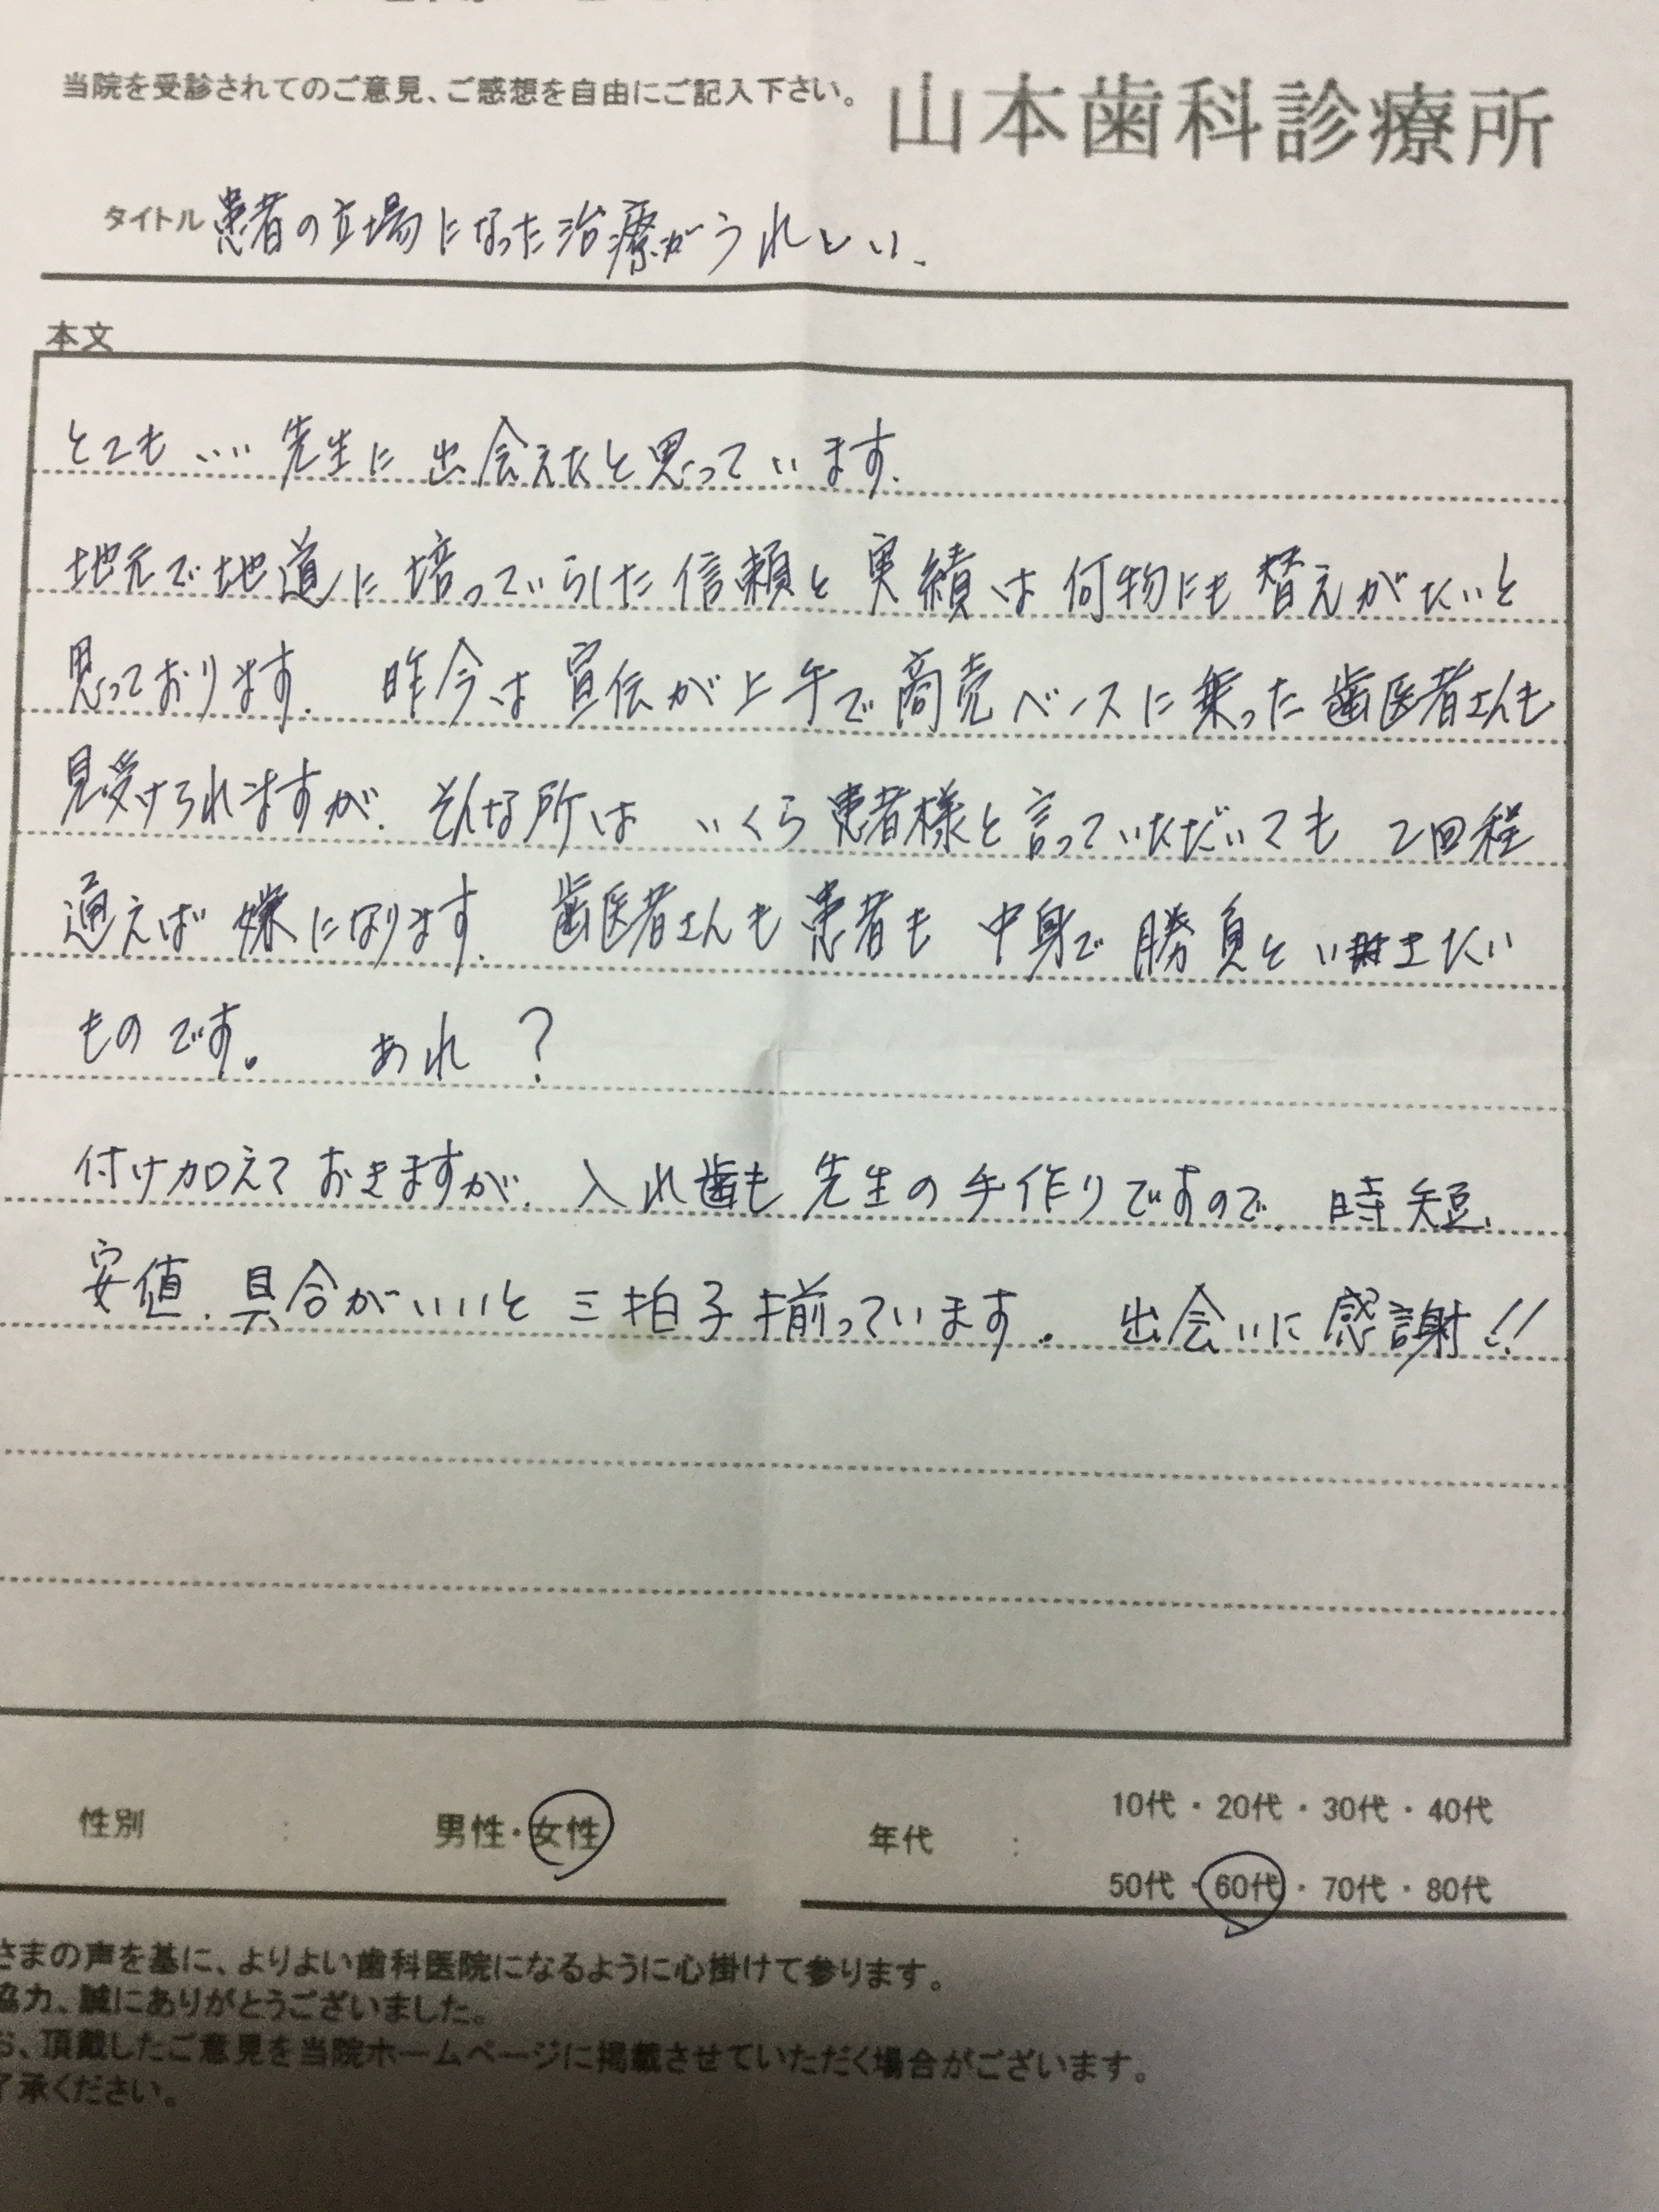 当院を受診されてのご意見、ご感想を自由にご記入下さい。
山本歯科診療所
タイトル 患者の立場になった治療がうれしい。
本文
とてもいい先生に出会えたと思っています。
地元で地道に培っていらした信頼と実績は何物にも替えがたいと
思っております。 昨今は宣伝が上手で商売ベースに乗った歯医者さんも
見受けられますが、そんな所は いくら患者様と言っていただいても 2回程
通えば嫌になります。 歯医者さんも患者も 中身で勝負といきたい
ものです。 あれ?
付け加えておきますが、入れ歯も先生の手作りですので、時短、
安値、具合がいいと三拍子揃っています。 出会いに感謝!!
性別 : 男性・女性
年代 : 10代・20代・30代・40代
50代・60代・70代・80代
さまの声を基に、よりよい歯科医院になるように心掛けて参ります。
協力、誠にありがとうございました。
お、頂戴したご意見を当院ホームページに掲載させていただく場合がございます。
了承ください。